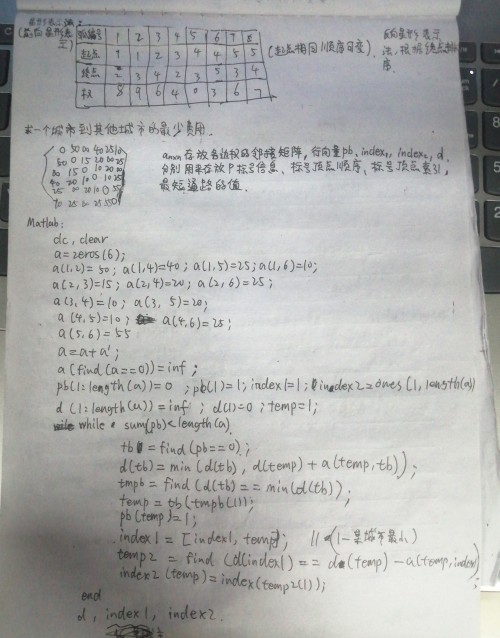 弧编号 1 2 3 4 5 6 7 8
起点 1 1 2 3 4 4 5 5
终点 2 3 4 2 3 5 3 4
权 8 9 6 4 0 3 6 7
(起点相同顺序可变)
求一个城市到其他城市的最少费用.
0 50 ∞ 40 25 10
50 0 15 20 ∞ 25
∞ 15 0 10 20 ∞
40 20 10 0 10 25
25 ∞ 20 10 0 55
10 25 ∞ 25 55 0
an×n存放各边权的邻接矩阵, 行向量pb、index1、index2、d
分别用来存放P标号信息、标号顶点顺序、标号顶点索引,
最短通路的值.
Matlab:
clc, clear
a=zeros(6);
a(1,2)=50; a(1,4)=40; a(1,5)=25; a(1,6)=10;
a(2,3)=15; a(2,4)=20; a(2,6)=25;
a(3,4)=10; a(3,5)=20;
a(4,5)=10; a(4,6)=25;
a(5,6)=55
a=a+a';
a(find(a==0))=inf;
pb(1:length(a))=0; pb(1)=1; index1=1; index2=ones(1,length(a))
d(1:length(a))=inf; d(1)=0; temp=1;
while sum(pb)<length(a)
tb=find(pb==0);
d(tb)=min(d(tb), d(temp)+a(temp,tb));
tmpb=find(d(tb)==min(d(tb));
temp=tb(tmpb(1));
pb(temp)=1;
index1=[index1, temp]; // (1-某城市最小)
temp2=find(d(index1)==d(temp)-a(temp,index1)
index2(temp)=index(temp2(1));
end
d, index1, index2.